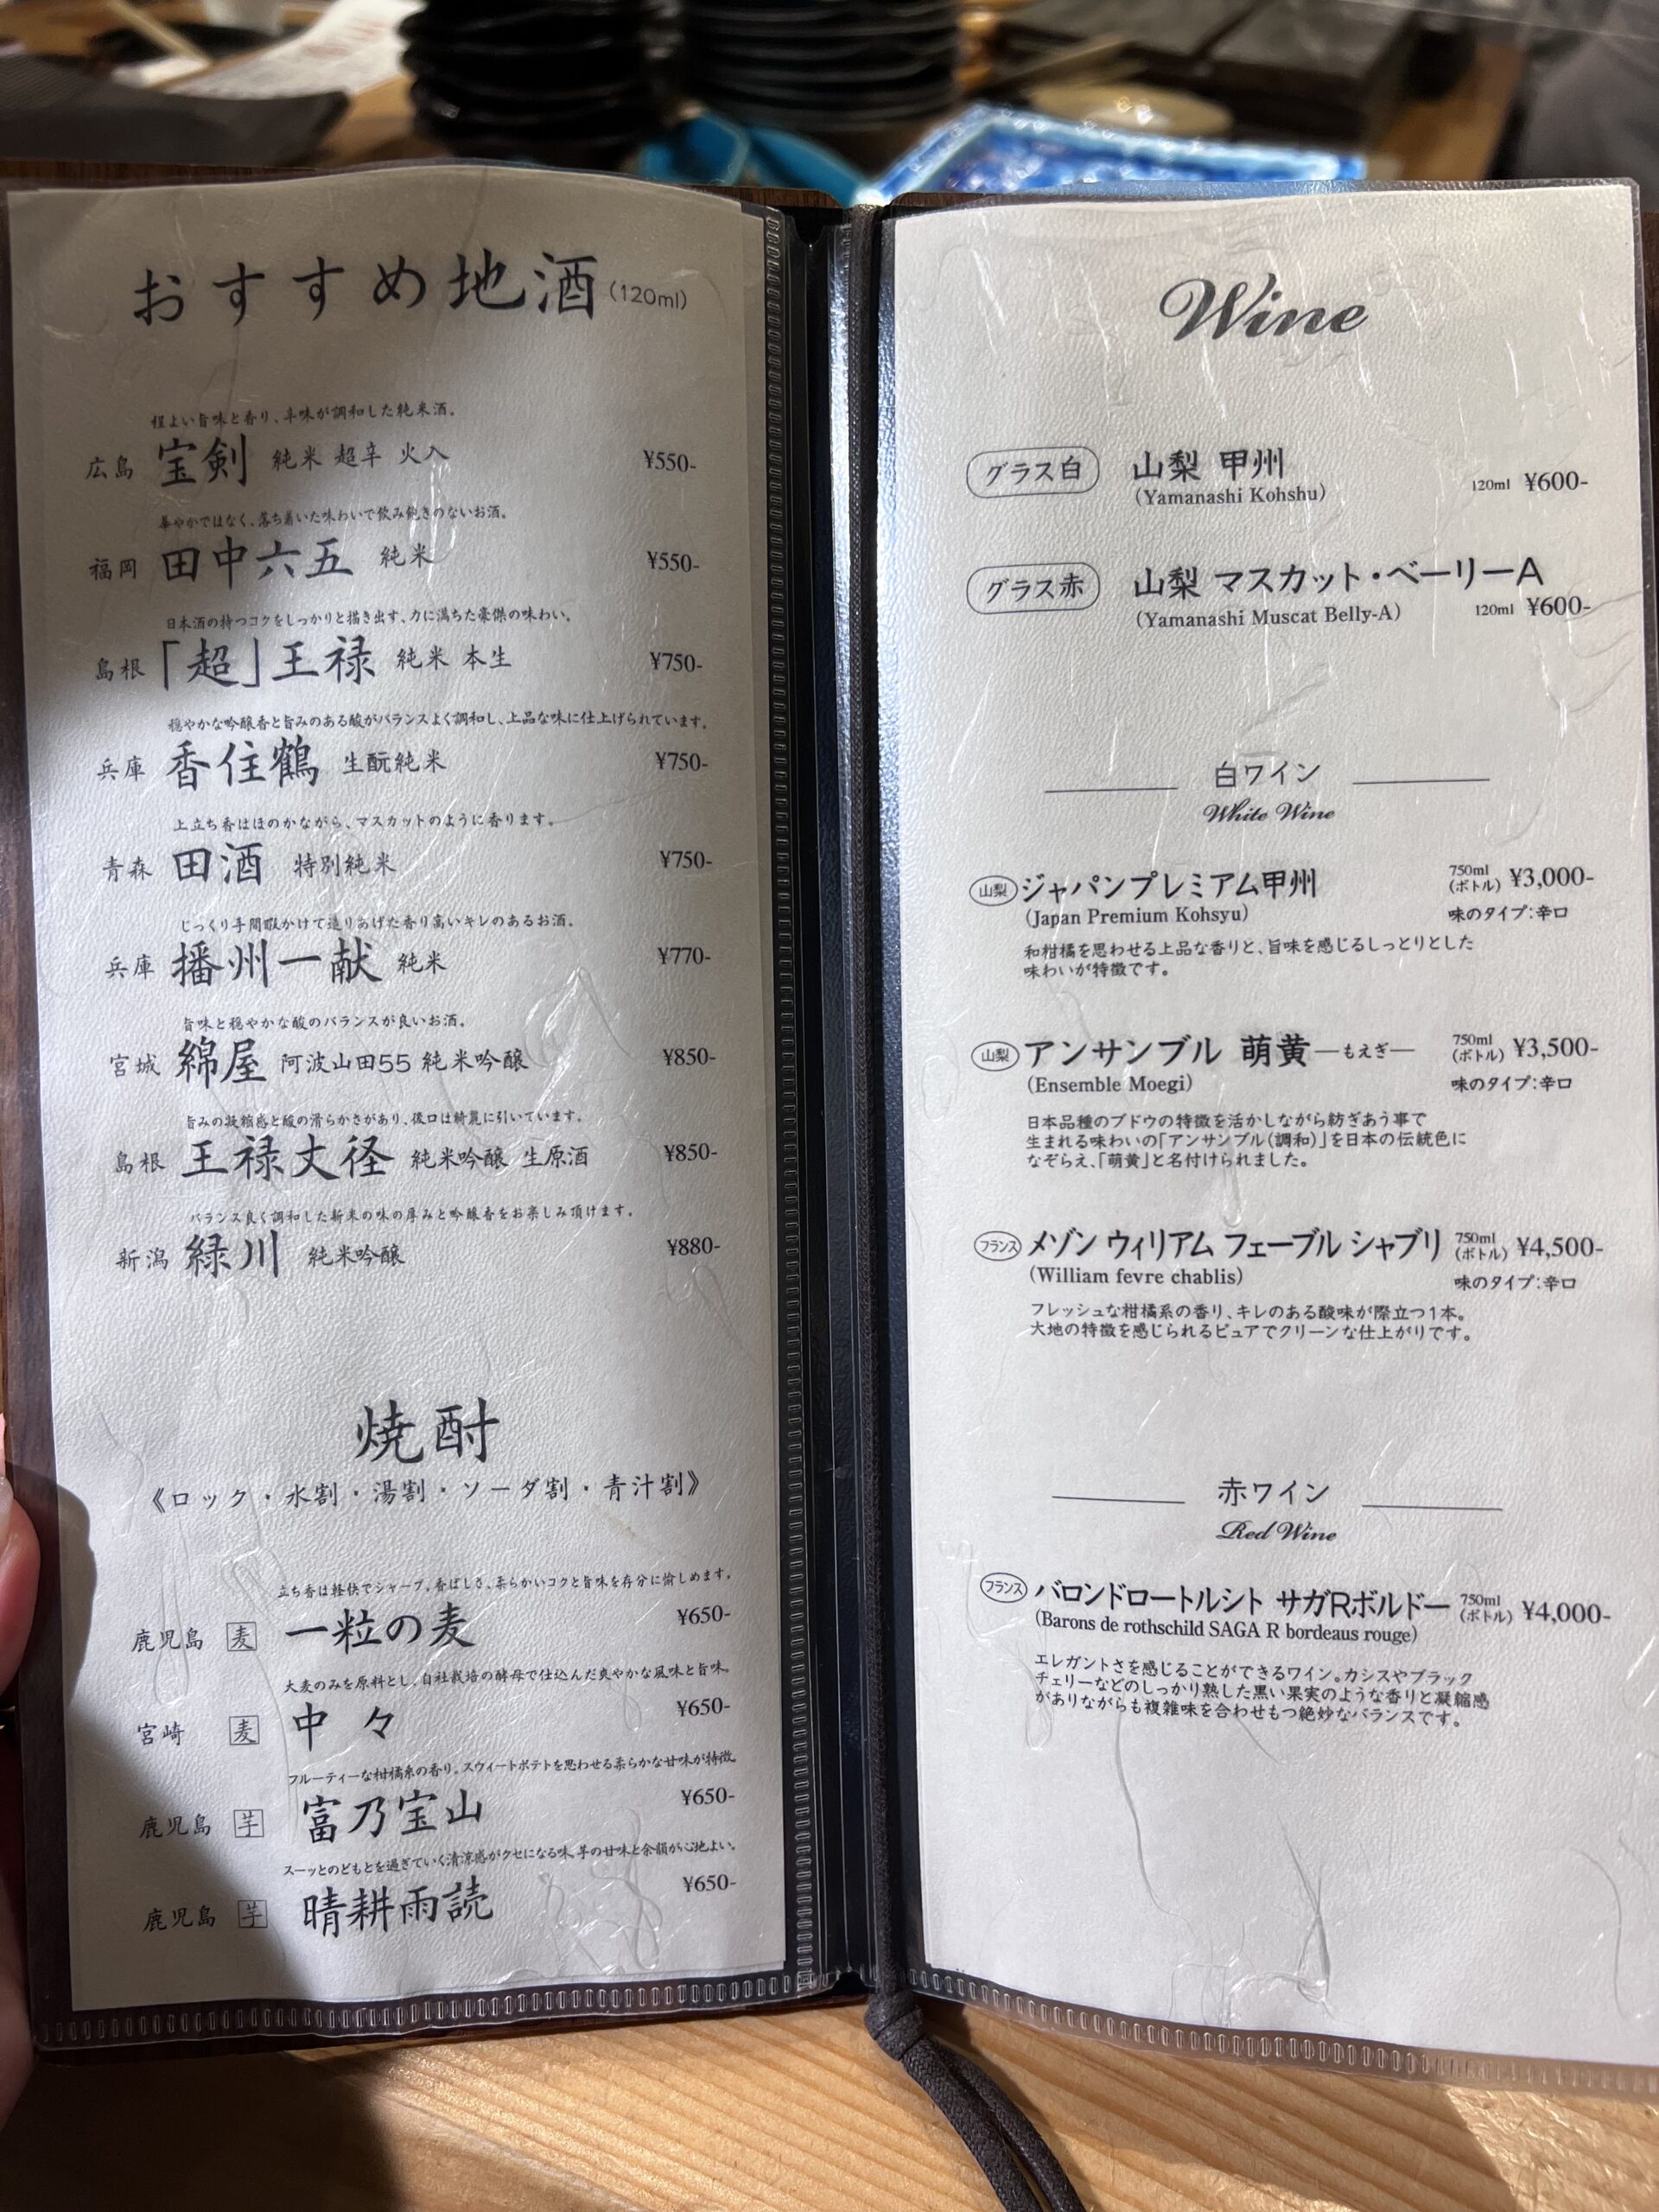 おすすめ地酒(120ml)
程よい旨味と香り、辛味が調和した純米酒。
広島 宝剣 純米 超辛 火入 ¥550-
華やかではなく、落ち着いた味わいで飲み飽きのないお酒。
福岡 田中六五 純米 ¥550-
日本酒の持つコクをしっかりと描き出す、力に満ちた豪傑の味わい。
島根 「超」王禄 純米 本生 ¥750-
穏やかな吟醸香と旨みのある酸がバランスよく調和し、上品な味に仕上げられています。
兵庫 香住鶴 生酛純米 ¥750-
上立ち香はほのかながら、マスカットのように香ります。
青森 田酒 特別純米 ¥750-
じっくり手間暇かけて造りあげた香り高いキレのあるお酒。
兵庫 播州一献 純米 ¥770-
旨味と穏やかな酸のバランスが良いお酒。
宮城 綿屋 阿波山田55 純米吟醸 ¥850-
旨みの凝縮感と酸の滑らかさがあり、後口は綺麗に引いています。
島根 王禄丈径 純米吟醸 生原酒 ¥850-
バランス良く調和した新米の味の厚みと吟醸香をお楽しみ頂けます。
新潟 緑川 純米吟醸 ¥880-
焼酎
《ロック・水割・湯割・ソーダ割・青汁割》
立ち香は軽快でシャープ。香ばしさ、柔らかいコクと旨味を存分に愉しめます。
鹿児島 麦 一粒の麦 ¥650-
大麦のみを原料とし、自社栽培の酵母で仕込んだ爽やかな風味と旨味。
宮崎 麦 中々 ¥650-
フルーティーな柑橘系の香り。スウィートポテトを思わせる柔らかな甘味が特徴。
鹿児島 芋 富乃宝山 ¥650-
スーッとのどもとを過ぎていく清涼感がクセになる味。芋の甘味と余韻が心地よい。
鹿児島 芋 晴耕雨読 ¥650-
Wine
グラス白 山梨 甲州
(Yamanashi Kohshu) 120ml ¥600-
グラス赤 山梨 マスカット・ベーリーA
(Yamanashi Muscat Belly-A) 120ml ¥600-
白ワイン
White Wine
山梨 ジャパンプレミアム甲州 750ml (ボトル) ¥3,000-
(Japan Premium Kohsyu) 味のタイプ:辛口
和柑橘を思わせる上品な香りと、旨味を感じるしっとりとした
味わいが特徴です。
山梨 アンサンブル 萌黄―もえぎ― 750ml (ボトル) ¥3,500-
(Ensemble Moegi) 味のタイプ:辛口
日本品種のブドウの特徴を活かしながら紡ぎあう事で
生まれる味わいの「アンサンブル(調和)」を日本の伝統色に
なぞらえ、「萌黄」と名付けられました。
フランス メゾン ウィリアム フェーブル シャブリ 750ml (ボトル) ¥4,500-
(William fevre chablis) 味のタイプ:辛口
フレッシュな柑橘系の香り、キレのある酸味が際立つ1本。
大地の特徴を感じられるピュアでクリーンな仕上がりです。
赤ワイン
Red Wine
フランス バロンドロートルシト サガRボルドー 750ml (ボトル) ¥4,000-
(Barons de rothschild SAGA R bordeaus rouge)
エレガントさを感じることができるワイン。カシスやブラック
チェリーなどのしっかり熟した黒い果実のような香りと凝縮感
がありながらも複雑味を合わせもつ絶妙なバランスです。